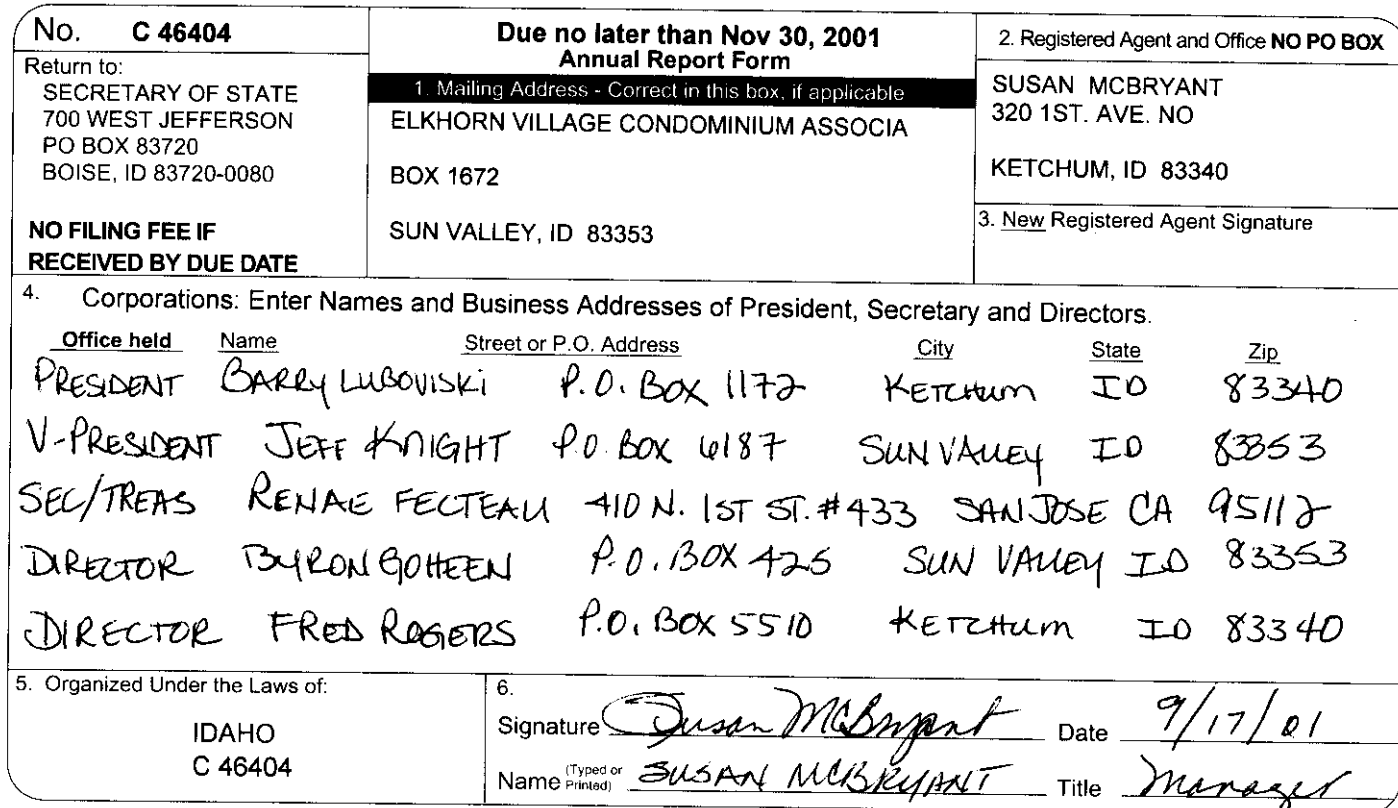 No. C 46404
Return to:
SECRETARY OF STATE
700 WEST JEFFERSON
PO BOX 83720
BOISE, ID 83720-0080
NO FILING FEE IF
RECEIVED BY DUE DATE
Due no later than Nov 30, 2001
Annual Report Form
1. Mailing Address - Correct in this box, if applicable
ELKHORN VILLAGE CONDOMINIUM ASSOCIA
BOX 1672
SUN VALLEY, ID 83353
2. Registered Agent and Office NO PO BOX
SUSAN MCBRYANT
320 1ST. AVE. NO
KETCHUM, ID 83340
3. New Registered Agent Signature
4. Corporations: Enter Names and Business Addresses of President, Secretary and Directors.
Office held Name Street or P.O. Address City State Zip
PRESIDENT BARRY LUBOVISKI P.O. BOX 1172 KETCHUM ID 83340
V-PRESIDENT JEFF KNIGHT P.O. BOX 6187 SUN VALLEY ID 83353
SEC/TREAS RENAE FECTEAU 410 N. 1ST ST. #433 SAN JOSE CA 95112
DIRECTOR BYRON GOHEEN P.O. BOX 425 SUN VALLEY ID 83353
DIRECTOR FRED ROGERS P.O. BOX 5510 KETCHUM ID 83340
5. Organized Under the Laws of:
IDAHO
C 46404
6.
Signature Susan McBryant Date 9/17/01
Name (Typed or Printed) SUSAN MCBRYANT Title Manager